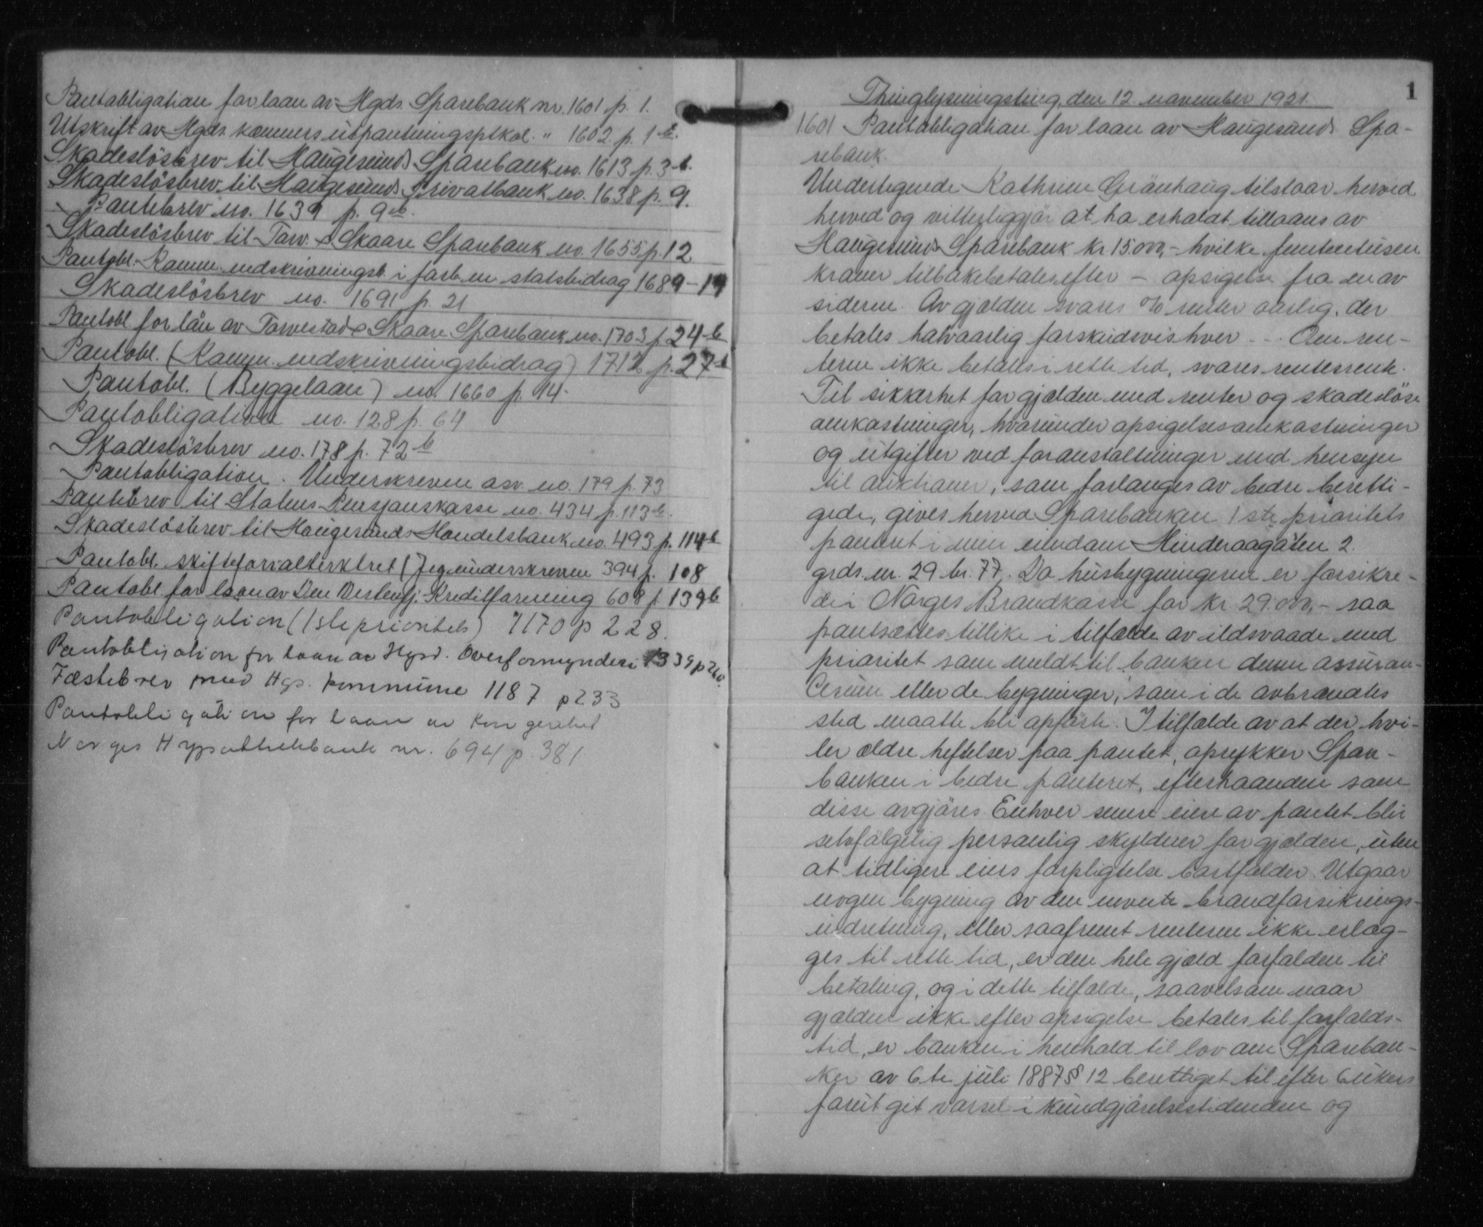 Pantobligation for laan av Hgds Sparebank nr. 1601 p. 1.
Utskrift av Hgds kæmners utpantningsptkol. " 1602 p. 1 b.
Skadeslösbrev til Haugesunds Sparebank no. 1613 p. 3 b.
Skadeslösbrev til Haugesunds Privatbank no. 1638 p. 9.
Pantebrev no. 1639 p. 9 b.
Skadeslösbrev til Torv. & Skaare Sparebank no. 1655 p. 12
Pantobl. Komm. nedskrivningsb. i forb. m. statsbidrag 1689 - 19
Skadeslösbrev no. 1691 p. 21
Pantobl for lån av Torvestad & Skaare Sparebank no. 1703 p. 24 b
Pantobl. (Komm. nedskrivningsbidrag) 1712 p. 27 b
Pantobl. (Byggelaan) no. 1660 p. 14.
Pantobligation no. 128 p. 64
Skadeslösbrev no. 178 p. 72 b
Pantobligation. Underskrevne no. 179 p. 73
Pantebrev til Statens Pensjonskasse no. 434 p. 113 b.
Skadeslösbrev til Haugesunds Handelsbank no. 493 p. 114 b
Pantobl. (Jeg underskrevne 394 p. 108
Pantobl for laan av Den Vestenfj. Kreditforening 608 p 139 b
Pantobligation (1ste prioritets) 1170 p 228.
Pantobligation for laan av Hgsd. Overformynderi p 260.
Fæstebrev med Hgs. kommune 1187 p 233
Pantobligation for laan av Kongeriket
Norges Hypothekbank nr. 694 p. 381
1
Thinglysningsting den 12 november 1921.
1601 Pantobligation for laan av Haugesunds Spa-
rebank.
Undertegnede Kathrine Grönhaug tilstaar herved
herved og vitterliggjör at ha erholdt tillaans av
Haugesunds Sparebank kr 15.000,- hvilke femtentusen
kroner tilbakebetales efter - opsigelse fra en av
siderne. Av gjælden svares % renter aarlig, der
betales halvaarlig forskudsvis hver - - . Om ren-
terne ikke betales i rette tid, svares rentesrente.
Til sikkerhet for gjælden med renter og skadeslöse
omkostninger, hvorunder opsigelsesomkostninger
og utgifter ved foranstaltninger med hensyn
til auktioner, som forlanges av bedre beretti-
gede, gives herved Sparebanken 1ste prioritets
panteret i min eiendom Hinderaagaten 2.
grds. nr. 29 br. 77. Da husbygningerne er forsikre-
de i Norges Brandkasse for kr 29.000,- saa
pantsættes tillike i tilfælde av ildsvaade med
prioritet som meldt til banken denne assuran-
cesum eller de bygninger, som i de avbrændtes
sted maatte bli opført. I tilfælde av at der hvi-
ler ældre heftelser paa pantet, oprykker Spare-
banken i bedre panteret, efterhaanden som
disse avgjöres. Enhver senere eiere av pantet blir
selvfölgelig personlig skyldner for gjælden, uten
at tidligere eiers forpligtelse bortfalder. Utgaar
nogen bygning av den nævnte brandforsikrings-
indretning, eller saafremt renterne ikke erlæg-
ges til rette tid, er den hele gjæld forfalden til
betaling, og i dette tilfælde, saavelsom naar
gjælden ikke efter opsigelse betales til forfalds-
tid, er banken i henhold til lov om Spareban-
ker av 6te juli 1887 § 12 berettiget til efter 6 ukers
forut git varsel i kundgjörelsestidenden og